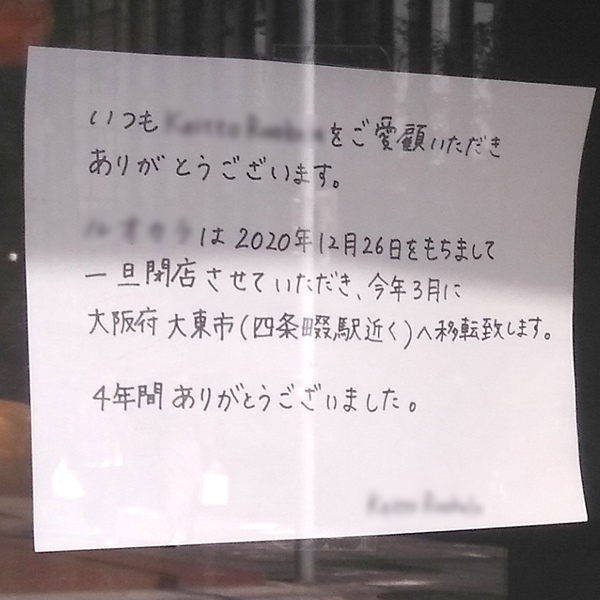 いつも をご愛顧いただき
ありがとうございます。
は2020年12月26日をもちまして
一旦閉店させていただき、今年3月に
大阪府大東市(四条畷駅近く)へ移転致します。
4年間ありがとうございました。